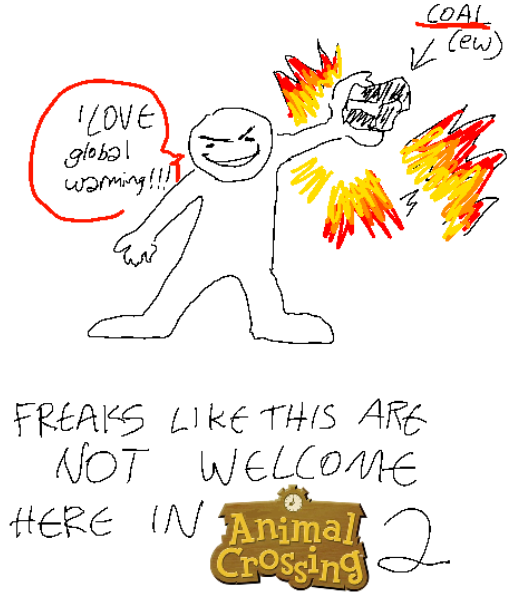 COAL
(ew)
I LOVE
global
warming!!!
FREAKS LIKE THIS ARE
NOT WELCOME
HERE IN Animal Crossing 2